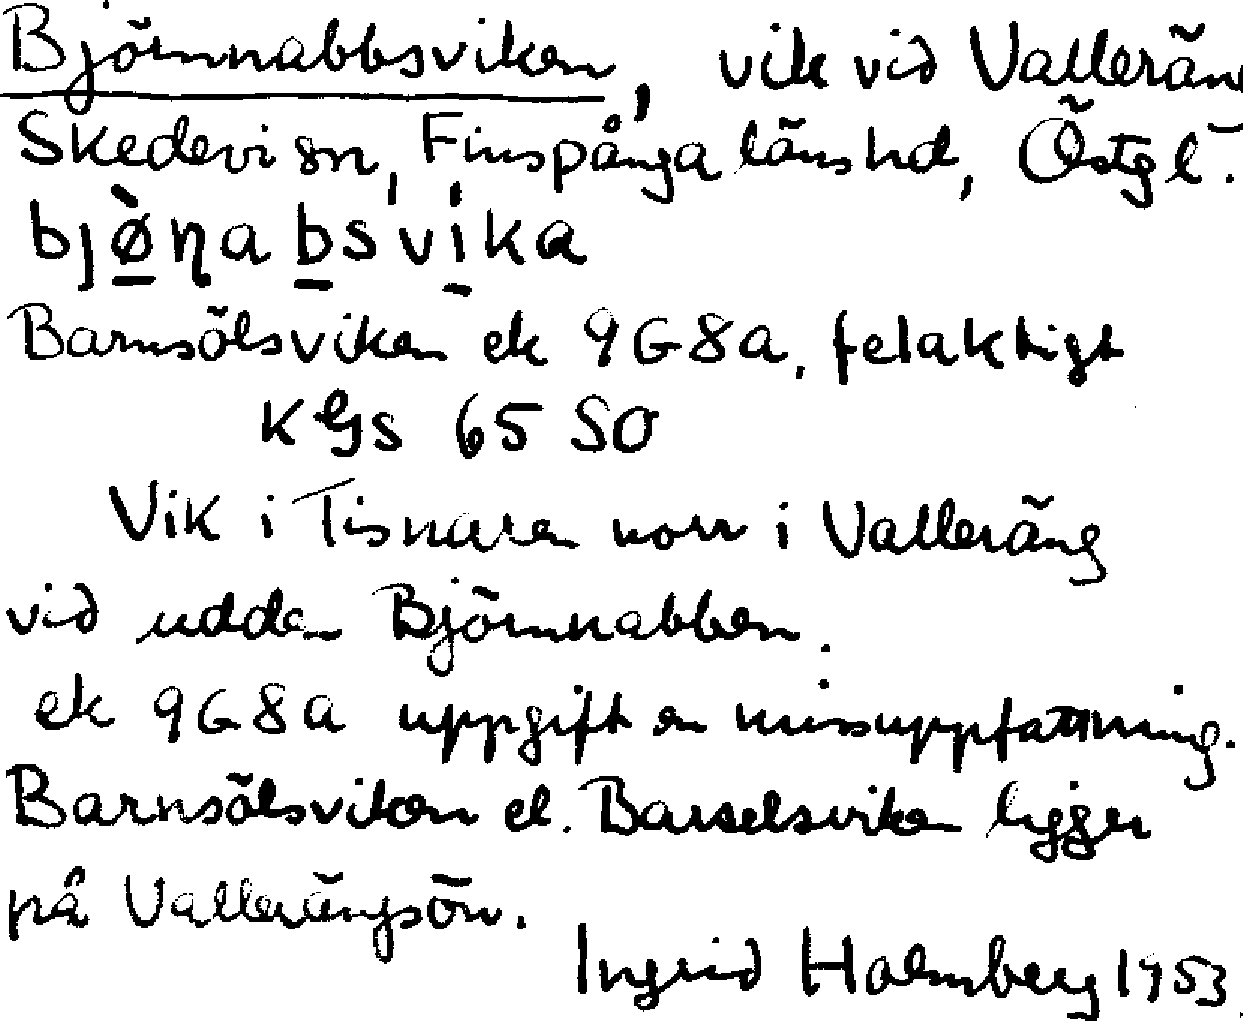 Björnnabbsviken, vik vid Valleräng
Skedevi sn, Finspånga länshd, Östgl.
bjø̀ṇabsvika
Barnsölsviken ek 9G8a, felaktigt
KGs 65 SO
Vik i Tisnaren norr i Valleräng
vid udden Björnnabben.
ek 9G8a uppgift en missuppfattning.
Barnsölsviken el. Barselsviken ligger
på Vallerängsön.
Ingrid Holmberg 1953